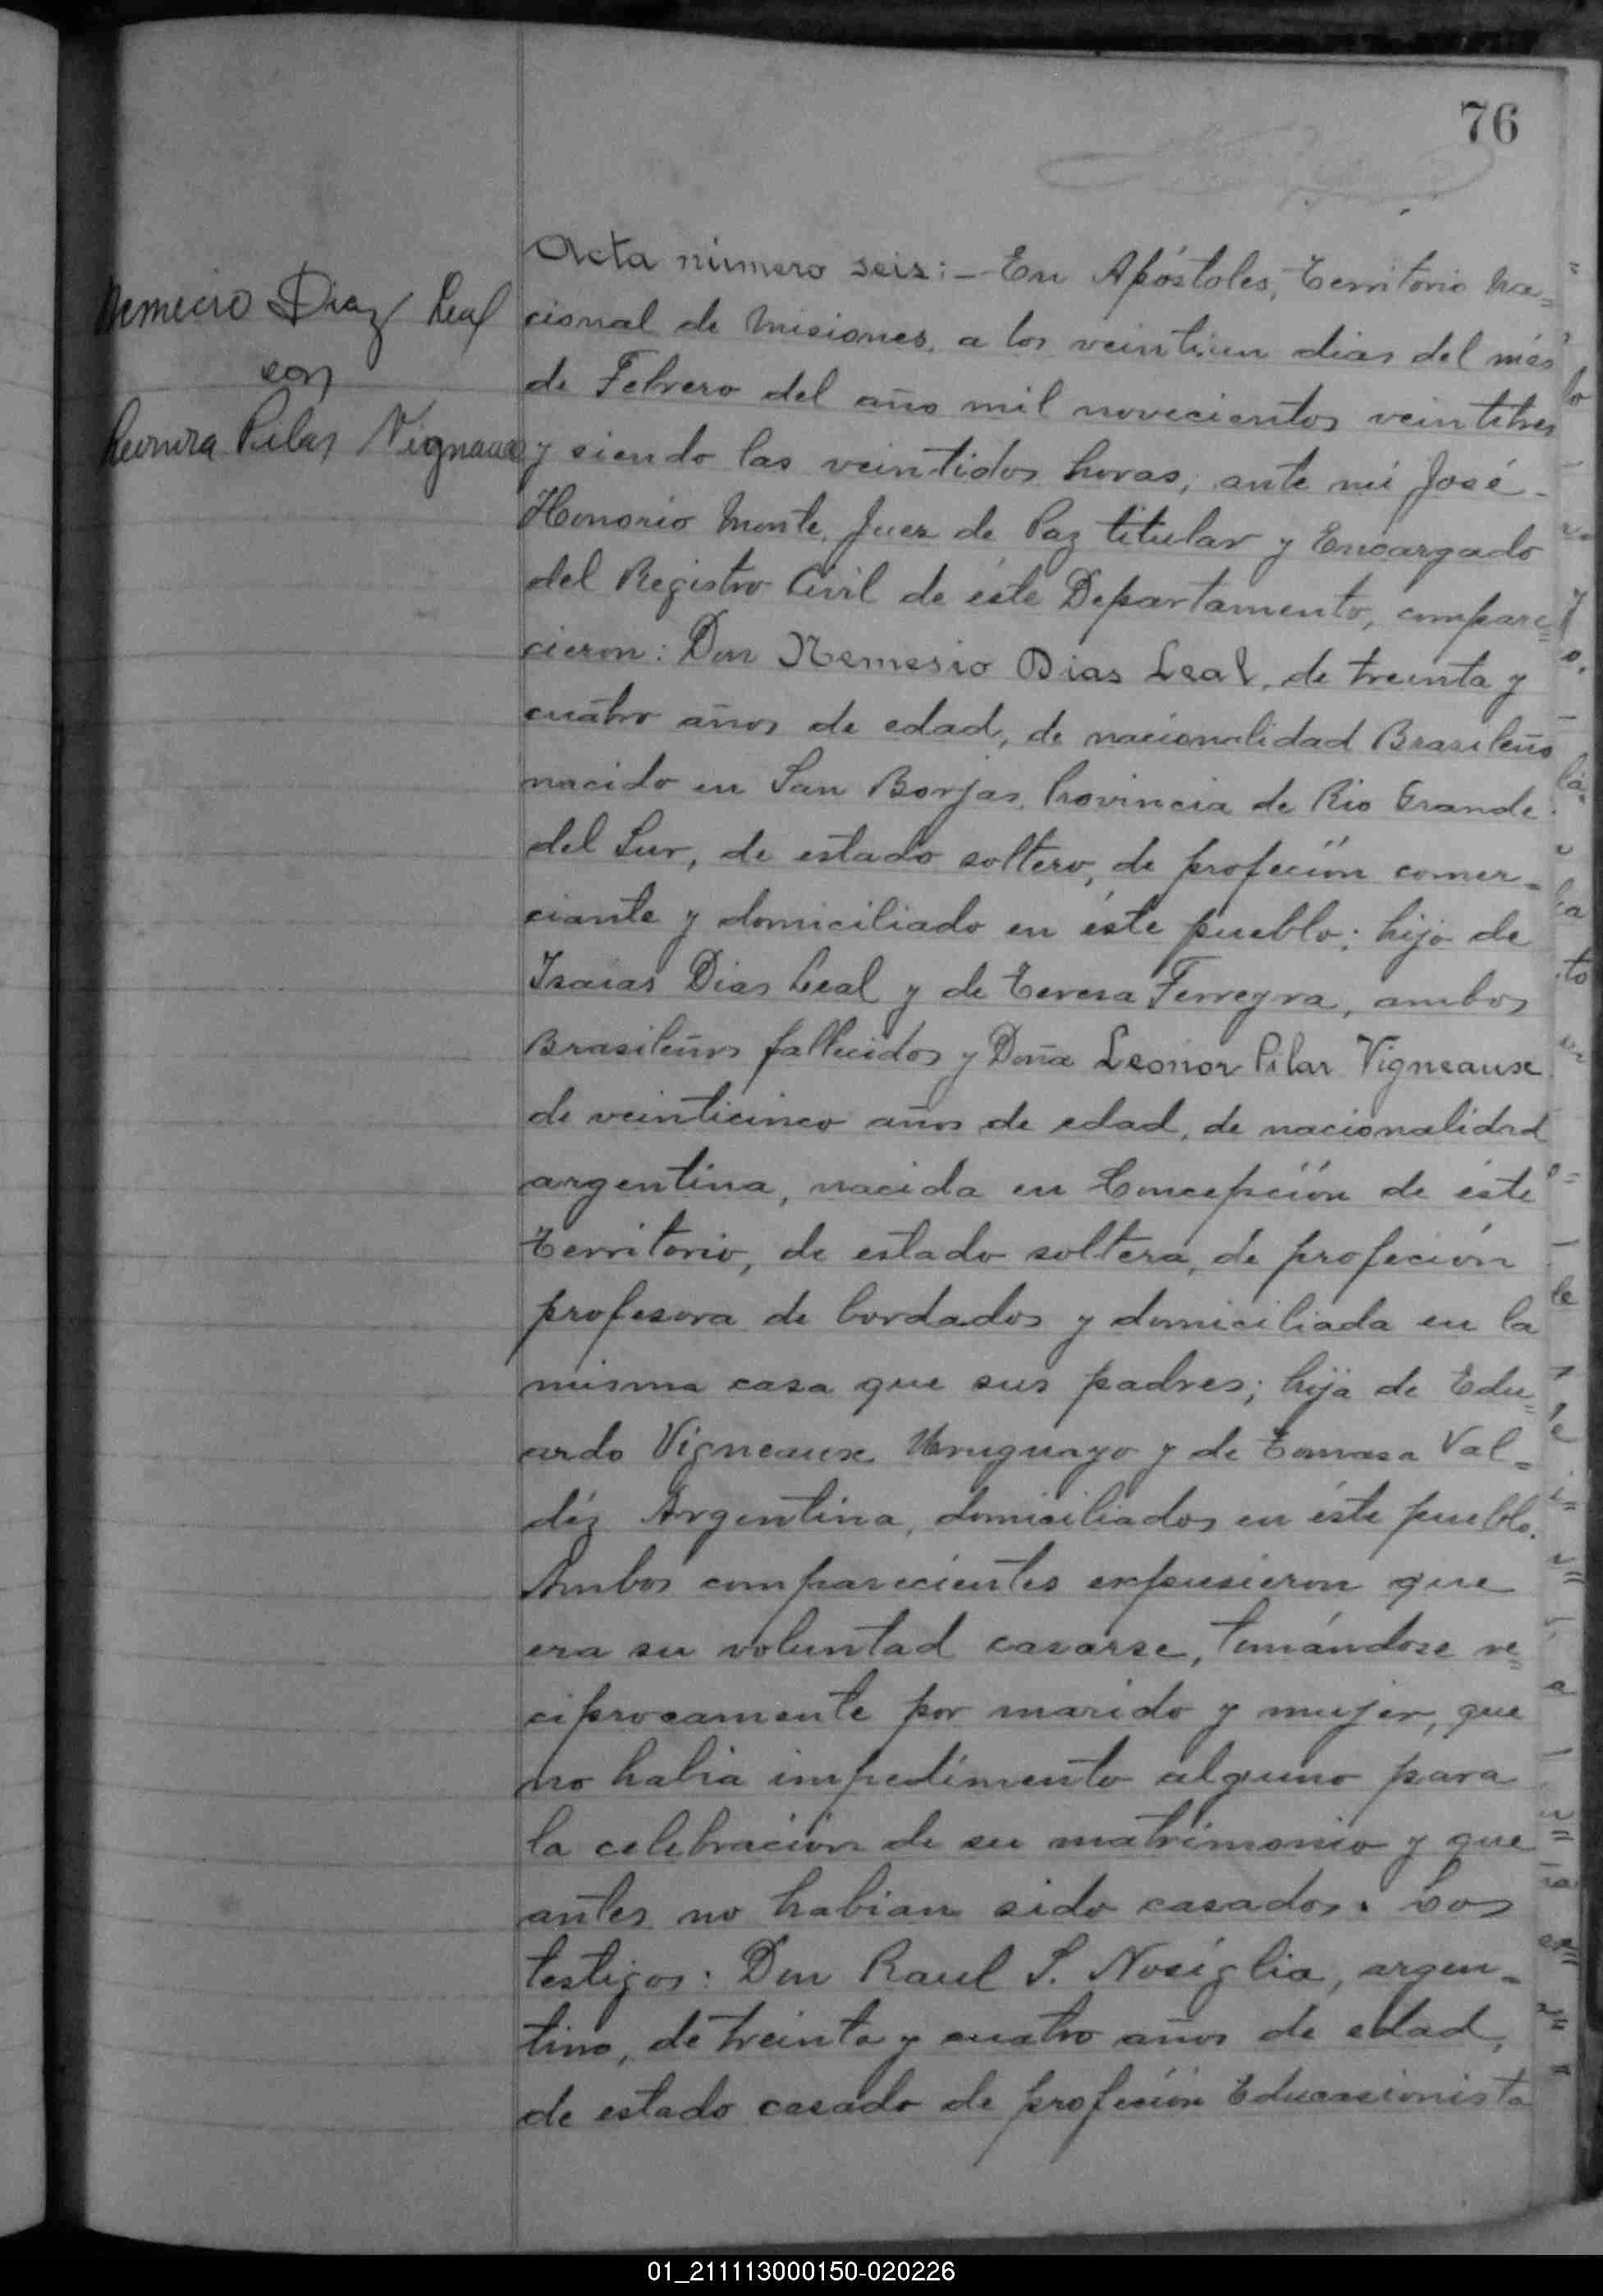 76
Nemecio Diaz Leal
con
Leonora Pilar Vignaux
Acta número seis:- En Apóstoles, Territorio Na=
cional de Misiones, a los veintiun dias del més
de Febrero del año mil novecientos veintitres
y siendo las veintidos horas, ante mi José
Honorio Monte, Juez de Paz titular y Encargado
del Registro Civil de éste Departamento, compare=
cieron: Don Nemesio Dias Leal, de treinta y
cuatro años de edad, de nacionalidad Brasileño
nacido en San Borjas, Provincia de Rio Grande
del Sur, de estado soltero, de profeción comer=
ciante y domiciliado en éste pueblo; hijo de
Isaias Dias Leal y de Teresa Ferreyra, ambos
Brasileños fallecidos y Doña Leonor Pilar Vigneaux
de veinticinco años de edad, de nacionalidad
argentina, nacida en Concepción de éste
Territorio, de estado soltera, de profeción
profesora de bordados y domiciliada en la
misma casa que sus padres; hija de Edu=
ardo Vigneaux Uruguayo y de Tomasa Val=
déz Argentina, domiciliados en éste pueblo.
Ambos comparecientes expusieron que
era su voluntad casarse, tomándose re=
ciprocamente por marido y mujer, que
no habia impedimento alguno para
la celebración de su matrimonio y que
antes no habian sido casados. Los
testigos: Don Raul S. Nosiglia, argen=
tino, de treinta y cuatro años de edad,
de estado casado de profeción Educasionista
01_211113000150-020226